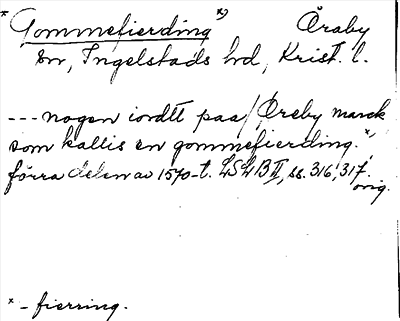 *Gommefierding" *) Öraby
sn, Ingelstads hd, Krist. l.
--- nogen iordtt paa / Öreby marck
som kaltis en gommefierding." *
förra delen av 1570-t. LSLB II, ss. 316, 317.
orig.
* - fierring.